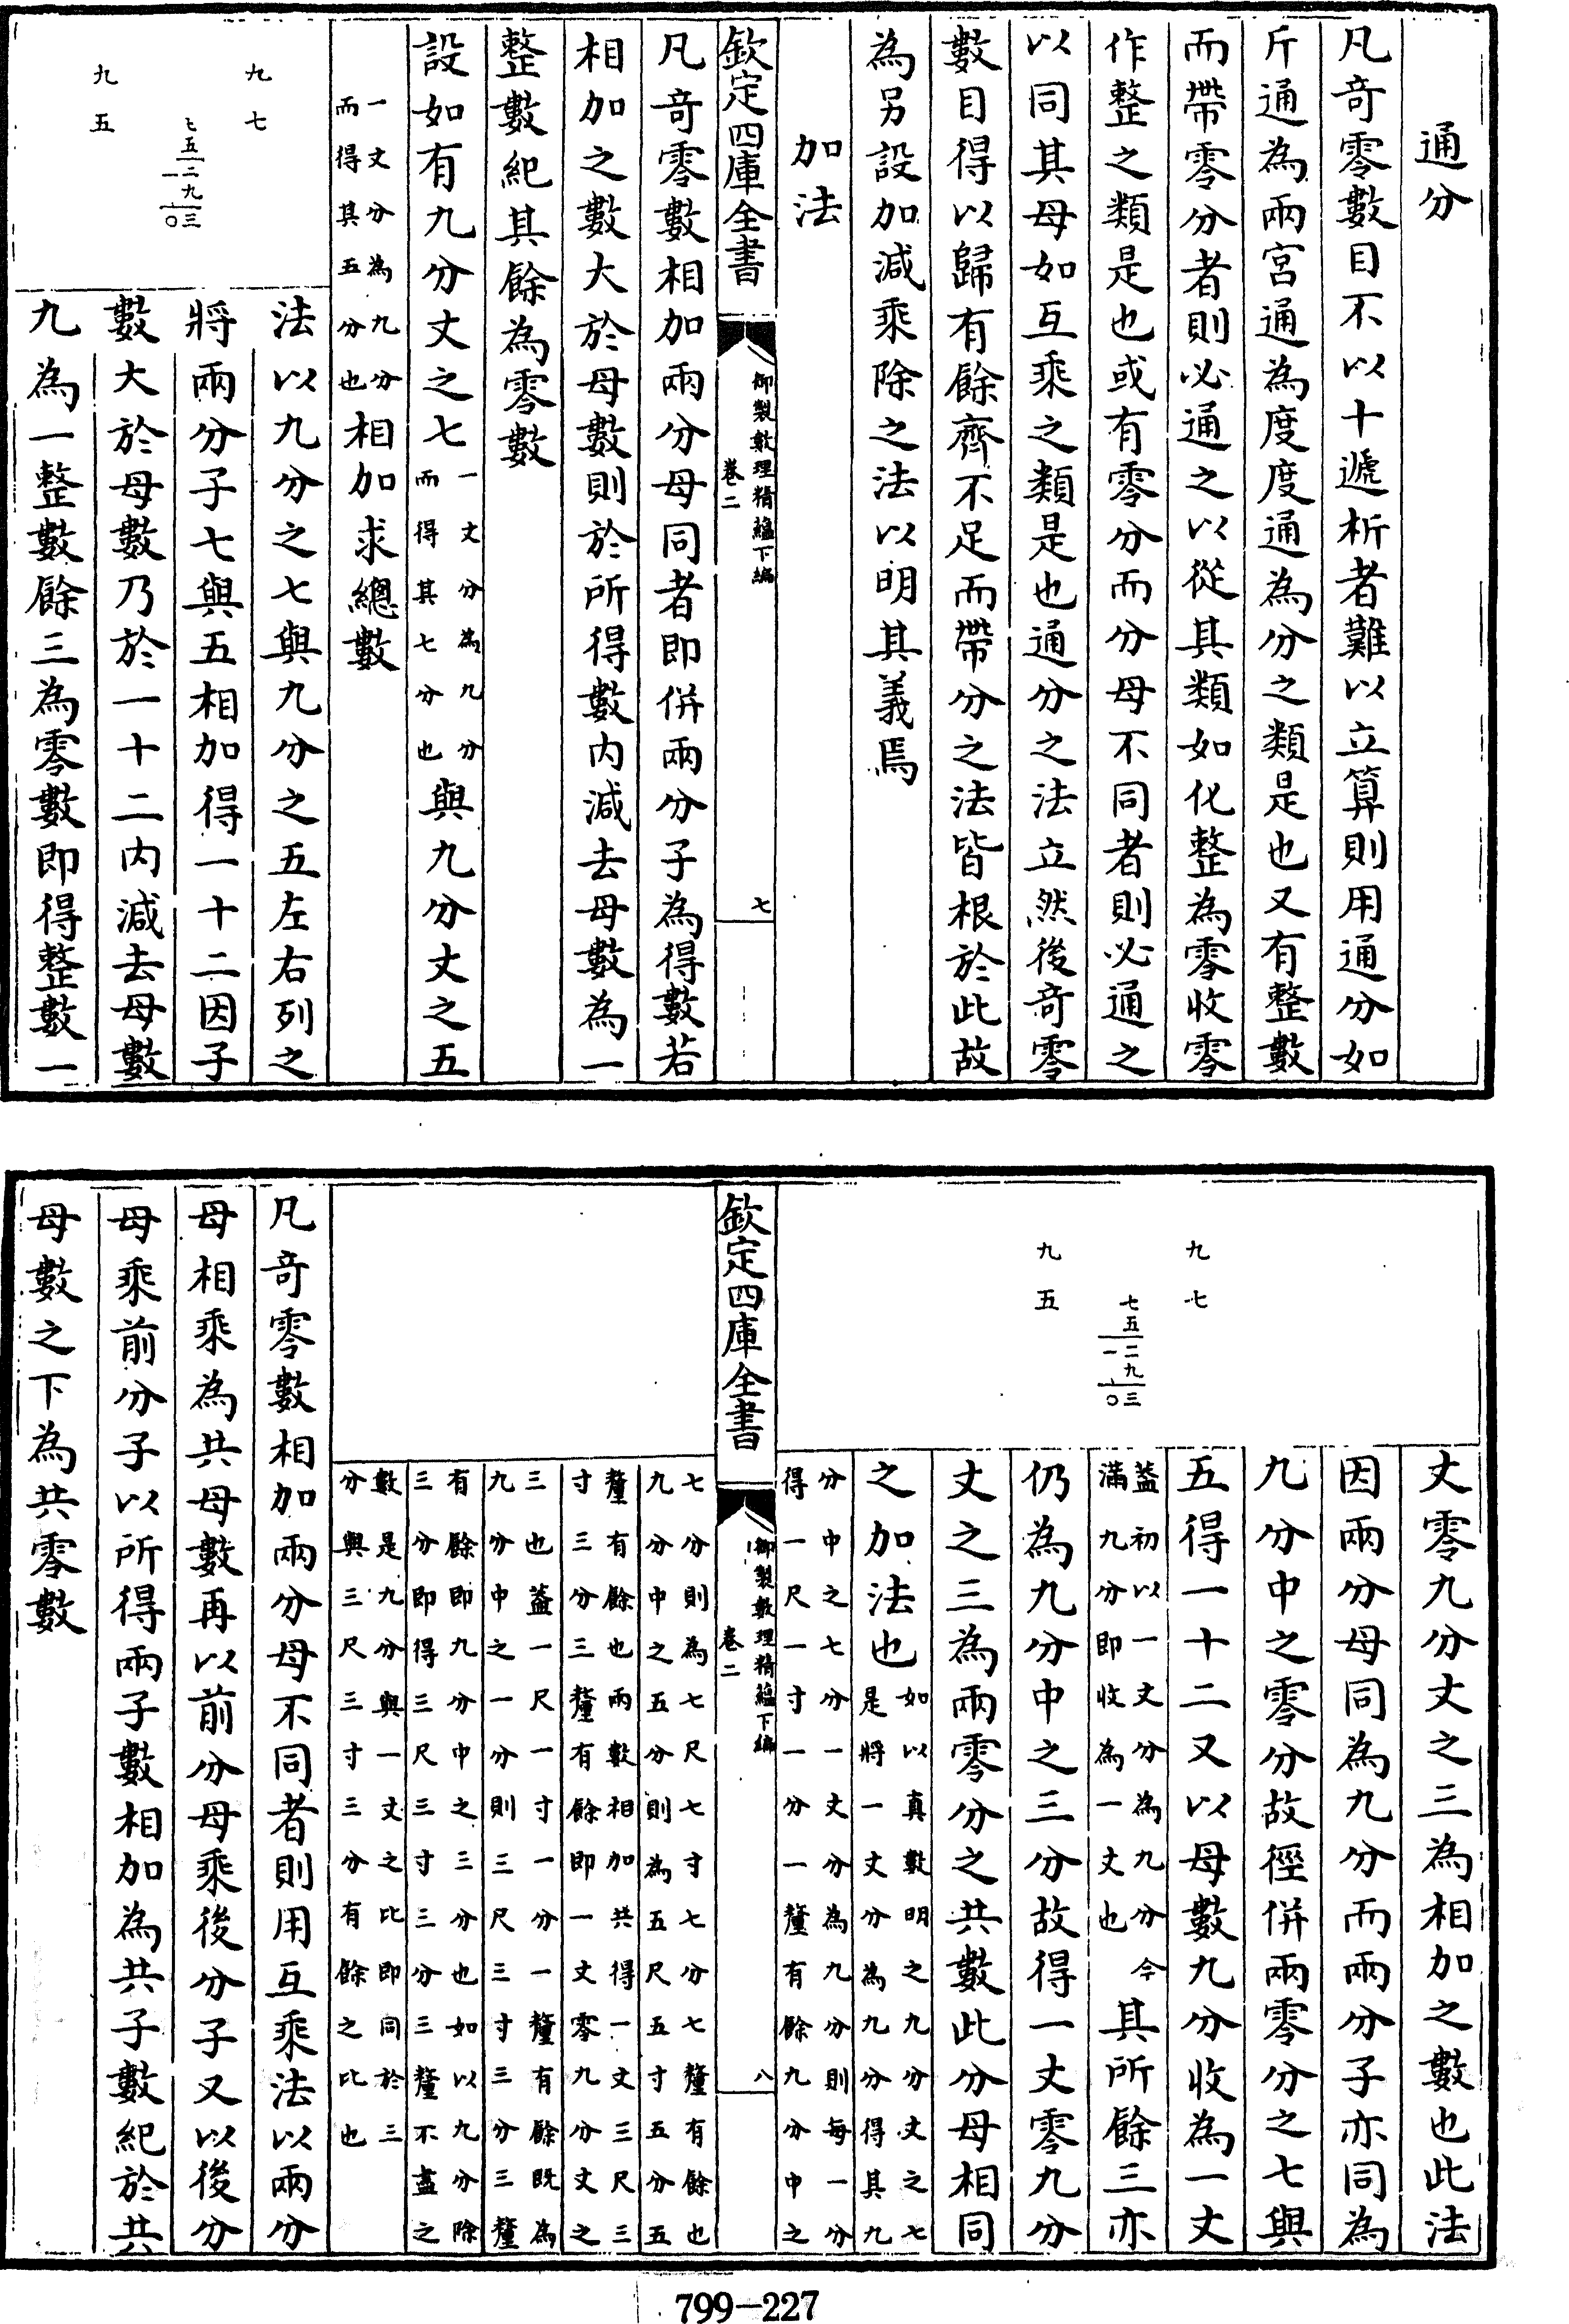 通分
凡奇零數目不以十遞析者難以立算則用通分如
斤通為兩宮通為度度通為分之類是也又有整數
而帶零分者則必通之以從其類如化整為零收零
作整之類是也或有零分而分母不同者則必通之
以同其母如互乘之類是也通分之法立然後奇零
數目得以歸有餘齊不足而帶分之法皆根於此故
為另設加減乘除之法以明其義焉
加法
欽定四庫全書
御製數理精蘊下編
卷二
七
凡奇零數相加兩分母同者即併兩分子為得數若
相加之數大於母數則於所得數內減去母數為一
整數紀其餘為零數
設如有九分丈之七一丈分為九分而得其七分也與九分丈之五
一丈分為九分而得其五分也相加求總數
九七
七五
一二
九
〇三
九五
法以九分之七與九分之五左右列之
將兩分子七與五相加得一十二因子
數大於母數乃於一十二內減去母數
九為一整數餘三為零數即得整數一
九七
七五
一二
九
〇三
九五
丈零九分丈之三為相加之數也此法
因兩分母同為九分而兩分子亦同為
九分中之零分故徑併兩零分之七與
五得一十二又以母數九分收為一丈
蓋初以一丈分為九分今滿九分即收為一丈也其所餘三亦
仍為九分中之三分故得一丈零九分
丈之三為兩零分之共數此分母相同
之加法也如以真數明之九分丈之七是將一丈分為九分得其九
分中之七分一丈分為九分則每一分得一尺一寸一分一釐有餘九分中之
欽定四庫全書
御製數理精蘊下編
卷二
八
七分則為七尺七寸七分七釐有餘也九分中之五分則為五尺五寸五分五
釐有餘也兩數相加共得一丈三尺三寸三分三釐有餘即一丈零九分丈之
三也蓋一尺一寸一分一釐有餘既為九分中之一分則三尺三寸三分三釐
有餘即九分中之三分也如以九分除三分即得三尺三寸三分三釐不盡之
數是九分與一丈之比即同於三分與三尺三寸三分有餘之比也
凡奇零數相加兩分母不同者則用互乘法以兩分
母相乘為共母數再以前分母乘後分子又以後分
母乘前分子以所得兩子數相加為共子數紀於共
母數之下為共零數
799-227